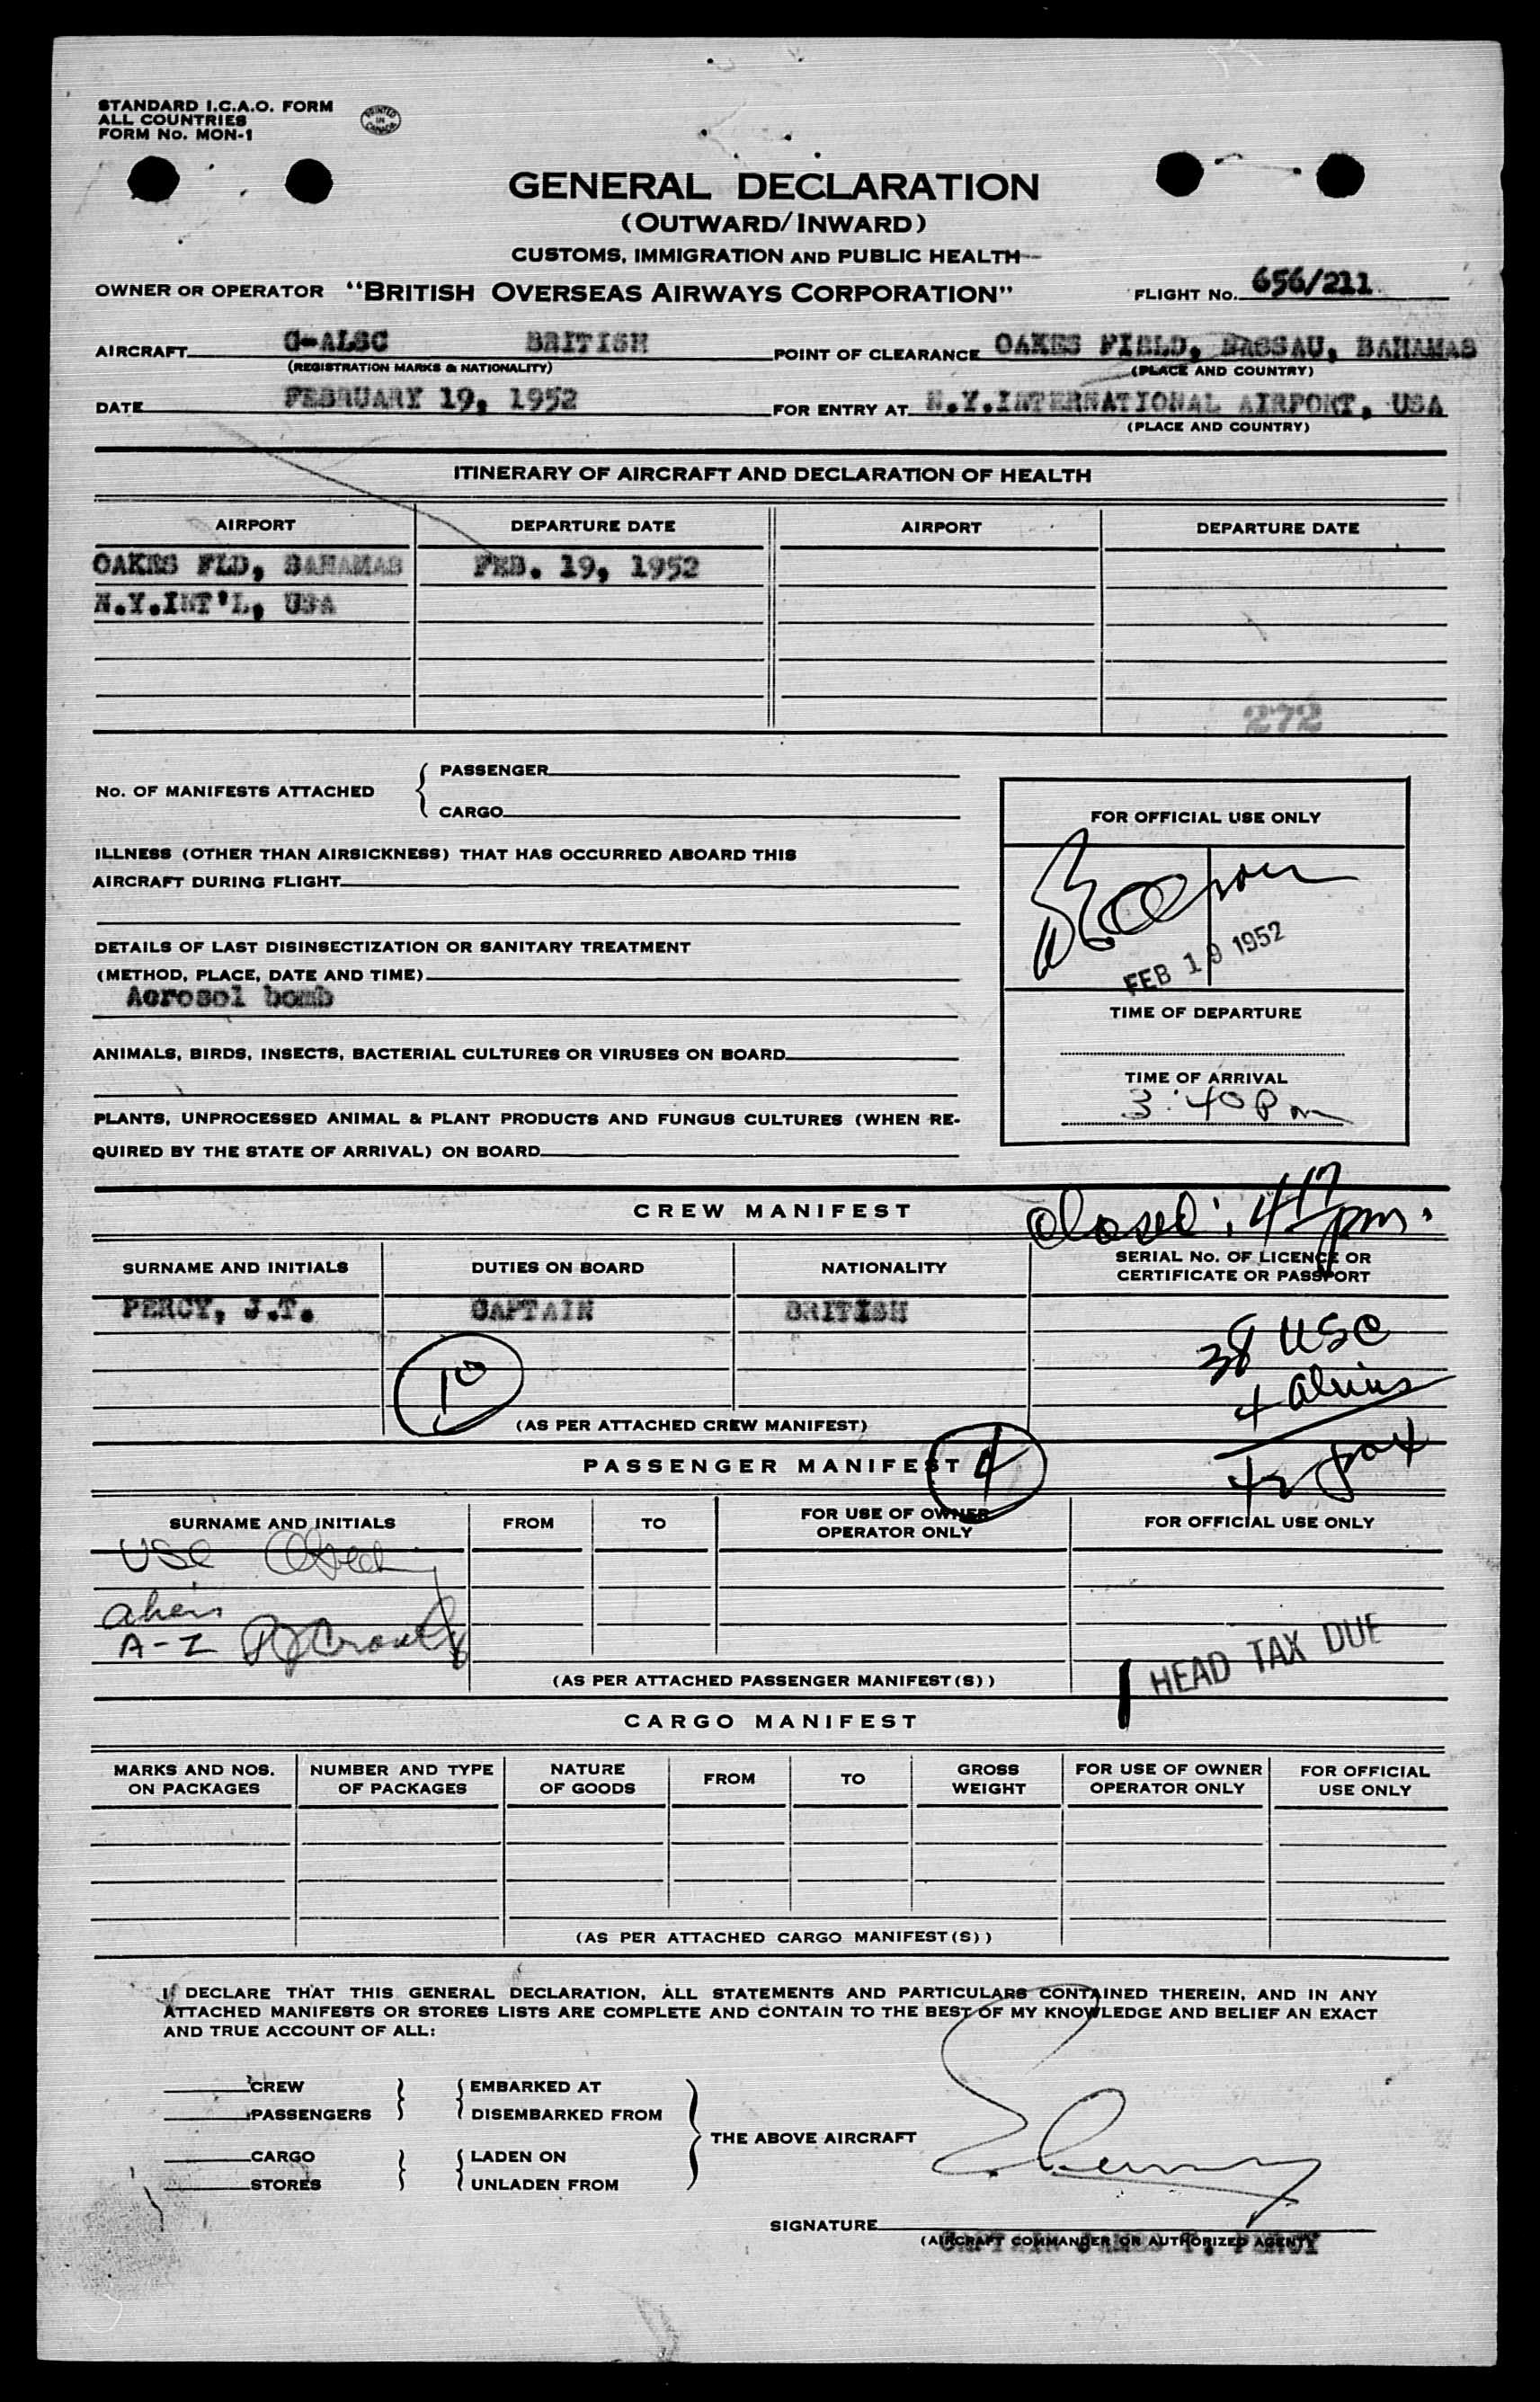 STANDARD I.C.A.O. FORM
ALL COUNTRIES
FORM No. MON-1
PRINTED IN CANADA
GENERAL DECLARATION
(OUTWARD/INWARD)
CUSTOMS, IMMIGRATION AND PUBLIC HEALTH
OWNER OR OPERATOR "BRITISH OVERSEAS AIRWAYS CORPORATION" FLIGHT No. 656/211
AIRCRAFT G-ALSC BRITISH POINT OF CLEARANCE OAKES FIELD, NASSAU, BAHAMAS
(REGISTRATION MARKS & NATIONALITY) (PLACE AND COUNTRY)
DATE FEBRUARY 19, 1952 FOR ENTRY AT N.Y.INTERNATIONAL AIRPORT, USA
(PLACE AND COUNTRY)
ITINERARY OF AIRCRAFT AND DECLARATION OF HEALTH
AIRPORT DEPARTURE DATE AIRPORT DEPARTURE DATE
OAKES FLD, BAHAMAS FEB. 19, 1952
N.Y.INT'L, USA
272
No. OF MANIFESTS ATTACHED { PASSENGER
CARGO
FOR OFFICIAL USE ONLY
ILLNESS (OTHER THAN AIRSICKNESS) THAT HAS OCCURRED ABOARD THIS
AIRCRAFT DURING FLIGHT
DETAILS OF LAST DISINSECTIZATION OR SANITARY TREATMENT
FEB 19 1952
(METHOD, PLACE, DATE AND TIME)
Aerosol bomb
TIME OF DEPARTURE
ANIMALS, BIRDS, INSECTS, BACTERIAL CULTURES OR VIRUSES ON BOARD
TIME OF ARRIVAL
3:40 Pm
PLANTS, UNPROCESSED ANIMAL & PLANT PRODUCTS AND FUNGUS CULTURES (WHEN RE-
QUIRED BY THE STATE OF ARRIVAL) ON BOARD
CREW MANIFEST
closed: 4 17 pm.
SURNAME AND INITIALS DUTIES ON BOARD NATIONALITY SERIAL No. OF LICENCE OR
CERTIFICATE OR PASSPORT
PERCY, J.T. CAPTAIN BRITISH
38 USC
10
4 aliens
(AS PER ATTACHED CREW MANIFEST)
42 pax
PASSENGER MANIFEST 4
SURNAME AND INITIALS FROM TO FOR USE OF OWNER
OPERATOR ONLY FOR OFFICIAL USE ONLY
USC
alien
A-Z
HEAD TAX DUE
(AS PER ATTACHED PASSENGER MANIFEST(S))
CARGO MANIFEST
MARKS AND NOS.
ON PACKAGES NUMBER AND TYPE
OF PACKAGES NATURE
OF GOODS FROM TO GROSS
WEIGHT FOR USE OF OWNER
OPERATOR ONLY FOR OFFICIAL
USE ONLY
(AS PER ATTACHED CARGO MANIFEST(S))
I DECLARE THAT THIS GENERAL DECLARATION, ALL STATEMENTS AND PARTICULARS CONTAINED THEREIN, AND IN ANY
ATTACHED MANIFESTS OR STORES LISTS ARE COMPLETE AND CONTAIN TO THE BEST OF MY KNOWLEDGE AND BELIEF AN EXACT
AND TRUE ACCOUNT OF ALL:
CREW } { EMBARKED AT
PASSENGERS } { DISEMBARKED FROM
THE ABOVE AIRCRAFT
CARGO } { LADEN ON
STORES } { UNLADEN FROM
SIGNATURE
(AIRCRAFT COMMANDER OR AUTHORIZED AGENT)
CAPTAIN JAMES T. PERCY